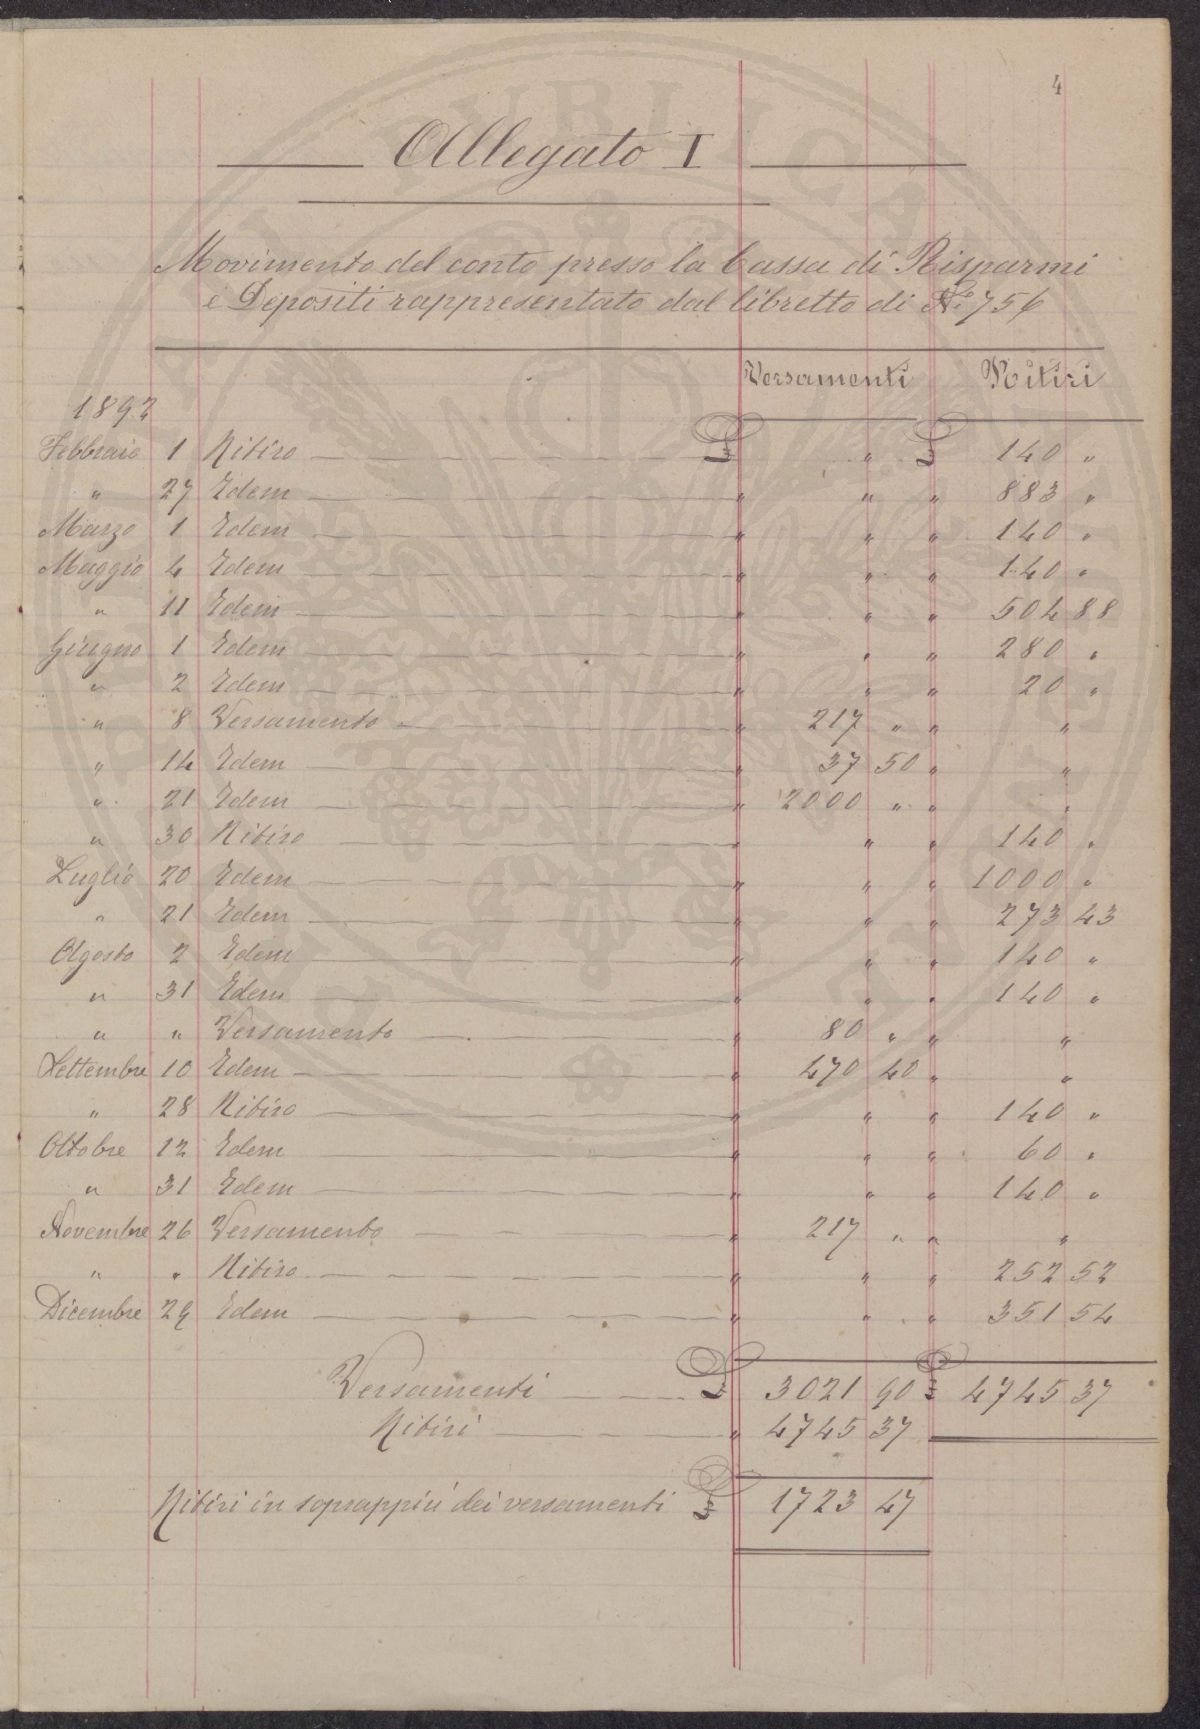 4
Allegato I
Movimento del conto presso la Cassa di Risparmi
e Depositi rappresentato dal libretto di No 756
Versamenti Ritiri
1892
Febbraio 1 Ritiro £ " £ 140 "
" 27 Idem " " " 883 "
Marzo 1 Idem " " " 140 "
Maggio 4 Idem " " " 140 "
" 11 Idem " " " 504 88
Giugno 1 Idem " " " 280 "
" 2 Idem " " " 20 "
" 8 Versamento " 217 " " "
" 14 Idem " 37 50 " "
" 21 Idem " 2000 " " "
" 30 Ritiro " " " 140 "
Luglio 20 Idem " " " 1000 "
" 21 Idem " " " 273 43
Agosto 2 Idem " " " 140 "
" 31 Idem " " " 140 "
" " Versamento " 80 " " "
Settembre 10 Idem " 470 40 " "
" 28 Ritiro " " " 140 "
Ottobre 12 Idem " " " 60 "
" 31 Idem " " " 140 "
Novembre 26 Versamento " 217 " " "
" " Ritiro " " " 252 52
Dicembre 29 Idem " " " 351 54
Versamenti £ 3021 90 £ 4745 37
Ritiri " 4745 37
Ritiri in soprappiù dei versamenti £ 1723 47